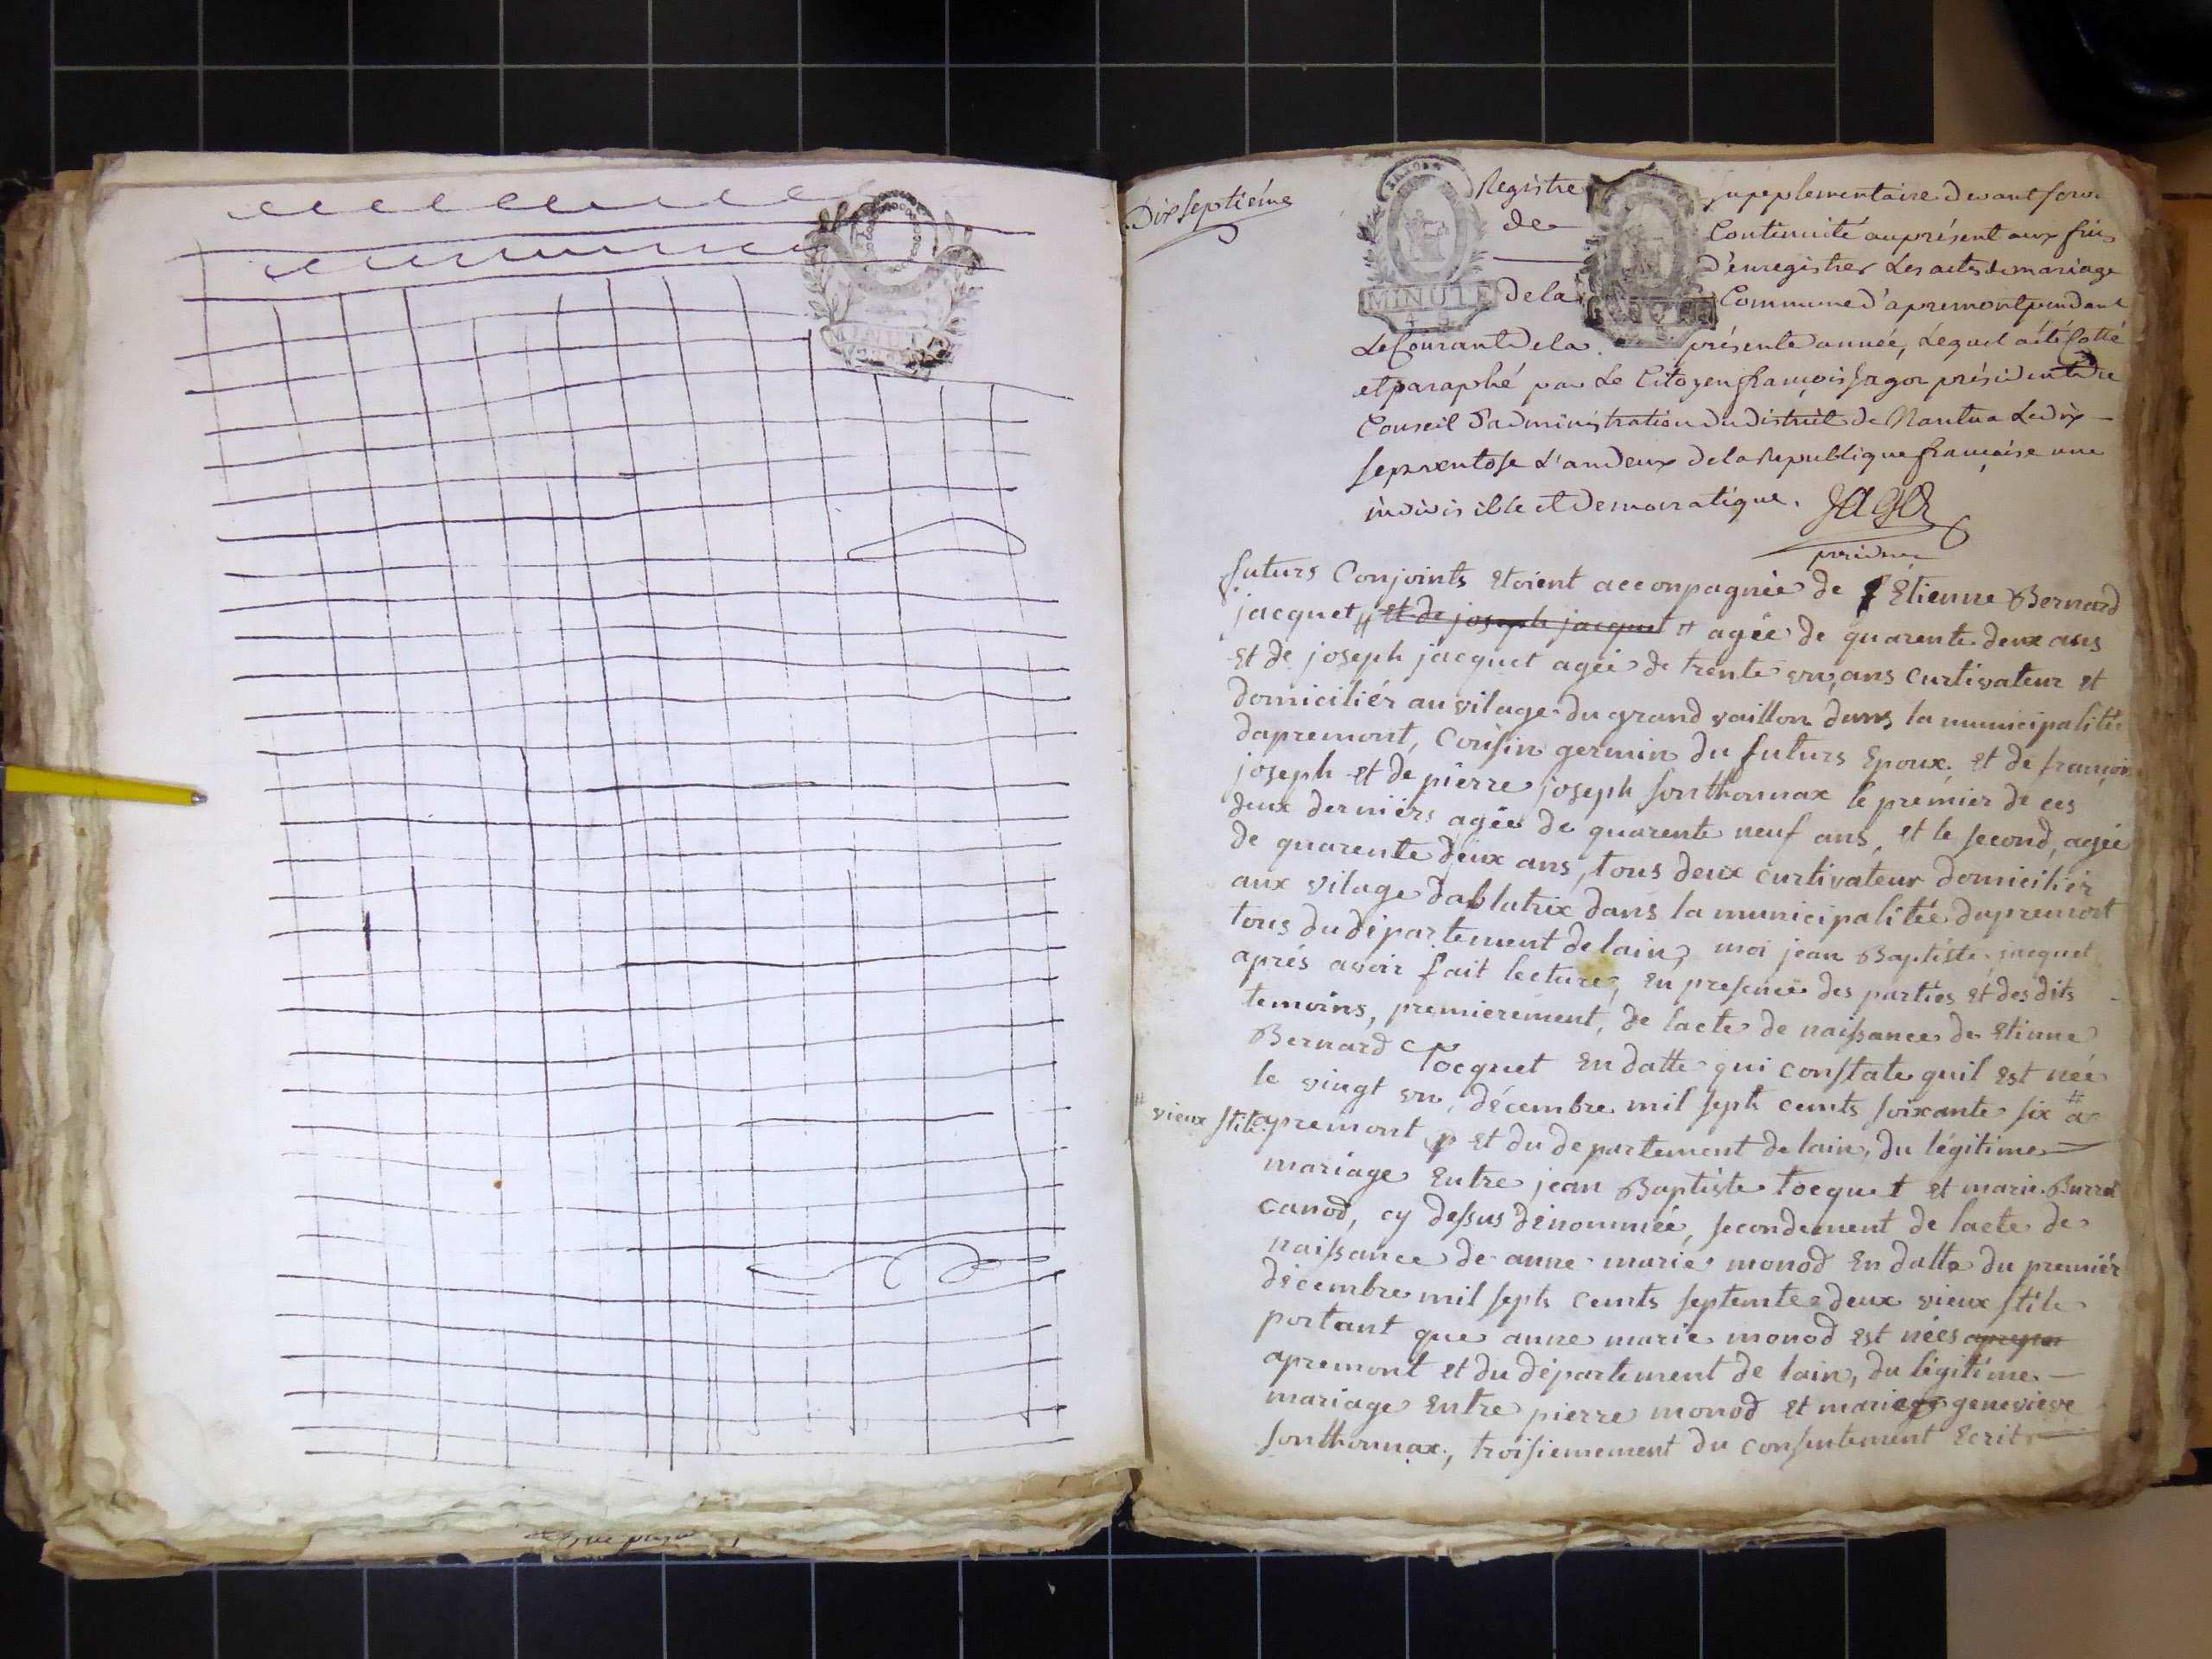 Dix Septiéme
Registre supplementaire devant servir
de Continuité au présent aux fins
D'enregistrer Les actes de mariage
de la Commune d'apremont pendant
MINUTE
Le Courant de la présente année, Lequel a été Cotté
et paraphé par Le Citoyen françois Jagor président du
Conseil D'administration du district de Nantua Le dix
sept ventose L'an deux de la Republique française une
indivisible et Democratique. JAGOR
président
futurs Conjoints Etoient acconpagnée de Etienne Bernard
jacquet # et de joseph jacquet # agée de quarente deux ans
Et de joseph jacquet agée de trente un, ans curtivateur Et
domiciliér au vilage du grand vaillon dans la municipalitée
dapremont, Cousin germin du futurs Epoux, et de françois
joseph et de pierre joseph Sonthonnax le premier de ces
deux derniers agée de quarente neuf ans, et le second, agée
de quarente deux ans, tous deux curtivateur domiciliér
aux vilage dablatrix dans la municipalitée dapremont
tous du département de lain, moi jean Baptiste jacquet
aprés avoir fait lecture, En presence des parties et des dits
temoins, premierement, de lacte de naissance de Etienne
Bernard Tocquet En datte qui constate quil Est née
le vingt un, décembre mil septs cents soixante six # a
# vieux stile
apremont et du departement de lain, du légitime
mariage Entre jean Baptiste Tocquet et marie Burret
canod, cy dessus dénommée, secondement de lacte de
naissance de anne marie monod En datte du premiér
décembre mil septs cents septente deux vieux stile
portant que anne marie monod Est nées
apremont et du département de lain, du légitime
mariage Entre pierre monod Et marie genevieve
Sonthonnax, troisiemement du consentement Ecrit